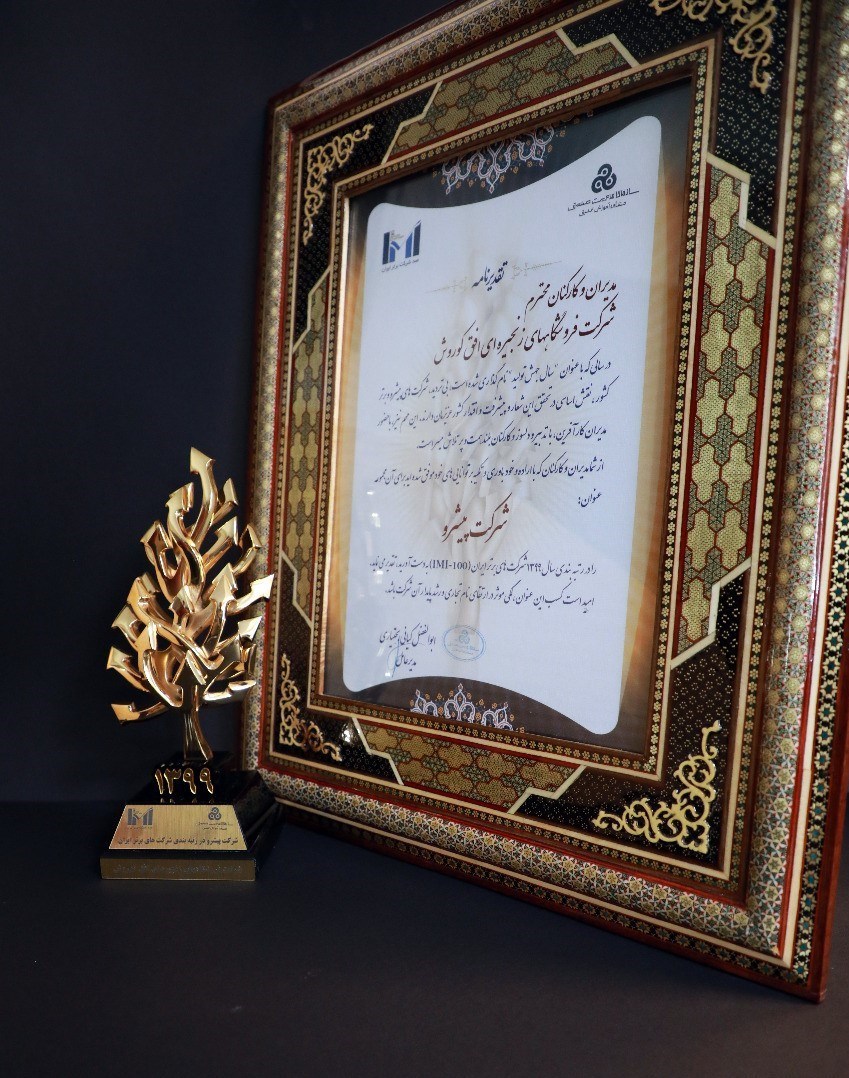 سازمان مدیریت صنعتی
صد شرکت برتر ایران
تقدیرنامه
مدیران و کارکنان محترم
شرکت فروشگاههای زنجیره ای افق کوروش
در سالی که با عنوان "سال جهش تولید" نام گذاری شده است، بی تردید، شرکت های پیشرو و برتر
کشور، نقش اساسی در تحقق این شعار و پیشرفت و اقتدار کشور عزیزمان دارند. این مهم نیز با حضور
مدیران کارآفرین، با تدبیر و دلسوز و کارکنان بلندهمت و پر تلاش میسر است.
از شما مدیران و کارکنان که با اراده و خود باوری و تکیه بر توانایی های خود موفق شده اید برای آن مجموعه
عنوان:
شرکت پیشرو
را در رتبه بندی سال ۱۳۹۹ شرکت های برتر ایران (IMI-100) به دست آورید، تقدیر می نماید.
امید است کسب این عنوان، کمکی موثر در ارتقای نام تجاری و رشد پایدار آن شرکت باشد.
ابوالفضل کیانی بختیاری
مدیرعامل
۱۳۹۹
شرکت پیشرو در رتبه بندی شرکت های برتر ایران